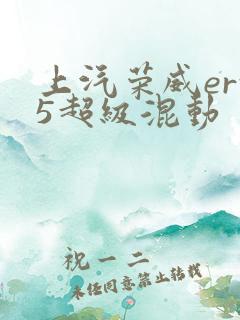 上汽荣威er
5超级混动
祝一二
未经同意禁止转载